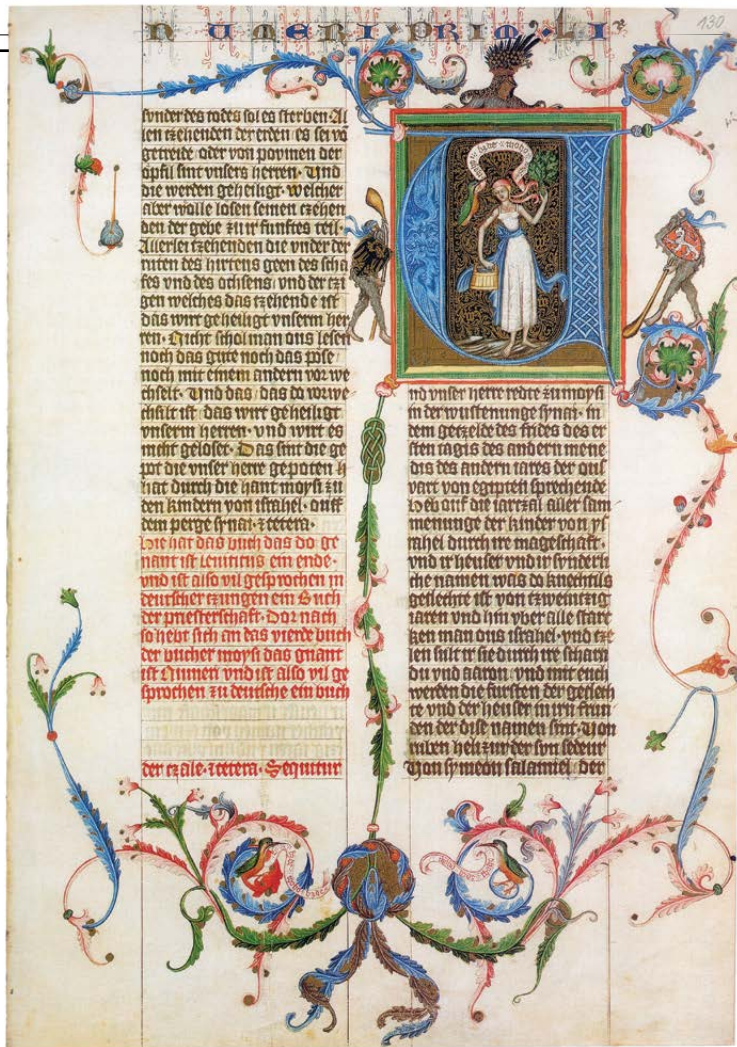 NUMERI PRIM LI
130
sunder des todes sol es sterben Al
len czehenden der erden es sei vō
getreide oder von povmen der
opfil sint vnsers herren · Vnd
die werden geheiligt · welcher
aber wolle losen seinen czehen
den der gebe zu ir funftes teil ·
Allerlei czehenden die vnder der
ruten des hirtens geen des scha
fes vnd des ochsens vnd der czi
gen welches das czehende ist
das wirt geheiligt vnserm her
ren · Nicht schol man ous lesen
noch das gute noch das pose
noch mit einem andern vor we
chselt · Vnd das das do vorwe
chslt ist das wirt geheiligt
vnserm herren · vnd wirt es
nicht geloset · Das sint die ge
pot die vnser herre gepoten
hat durch die hant moysi zu
den kindern von israhel · ouff
dem perge synai · zcetera ·
Hie hat das buch das do ge
nant ist Leuiticus ein ende ·
vnd ist also vil gesprochen in
deutscher czungen ein Buch
der priesterschaft · Dor nach
so hebt sich an das vierde buch
der bucher moysi das gnant
ist Numeri vnd ist also vil ge
sprochen zu deutsche ein buch
der czale · zcetera · Sequitur
nd vnser herre redte zu moysi
in der wustenunge synai · in
dem geczelde des frides des er
sten tagis des andern mene
dis des andern iares der ous
vart von egipten sprechende
Heb ouf die iarczal aller sam
menunge der kinder von ys
rahel durch ire mageschaft ·
vnd ir heuser vnd ir sunderli
che namen was do knechtils
geslechte ist von czweinczig
iaren vnd hin vber alle starc
ken man ous israhel · vnd cze
len sult ir sie durch ire scharn
du vnd aaron · vnd mit euch
werden die fursten der geslech
te vnd der heuser in irn frun
den der dise namen sint · Von
ruben helizur der son sedeur
Von symeon salamiel der